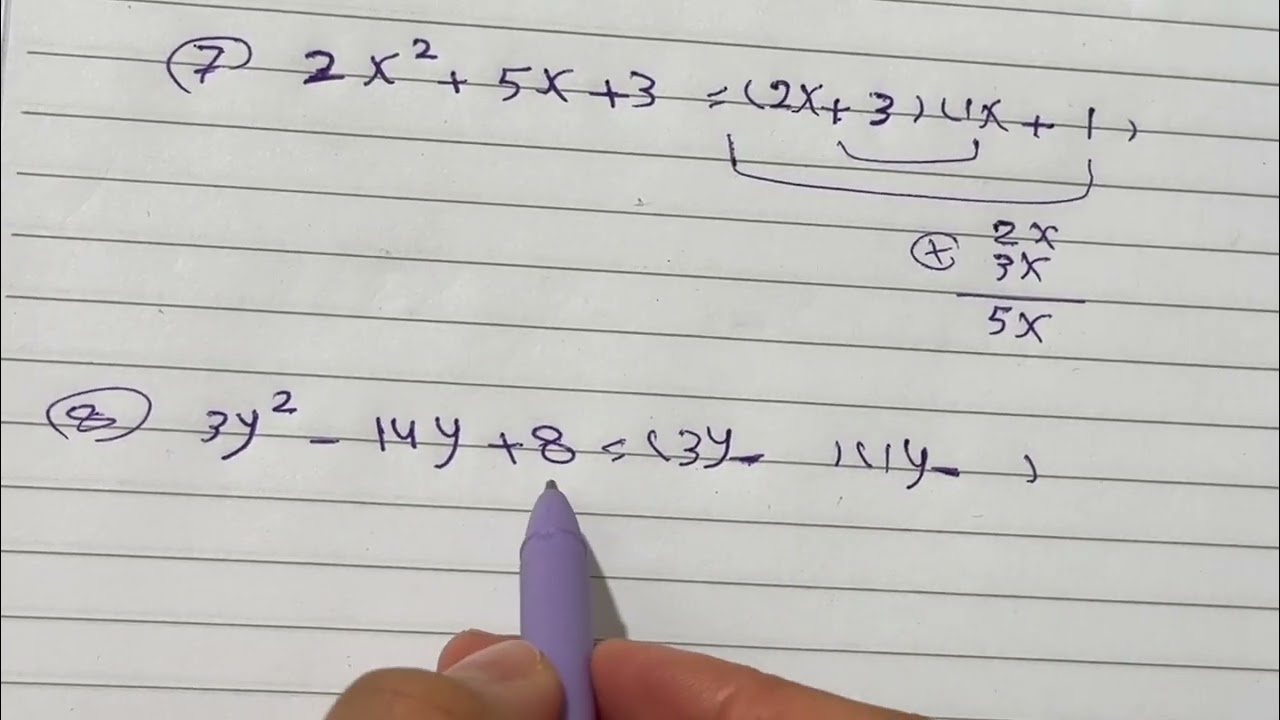 (7) 2x² + 5x + 3 = (2x + 3)(1x + 1)
⊕ 2x
3x
5x
(8) 3y² - 14y + 8 = (3y - )(1y - )